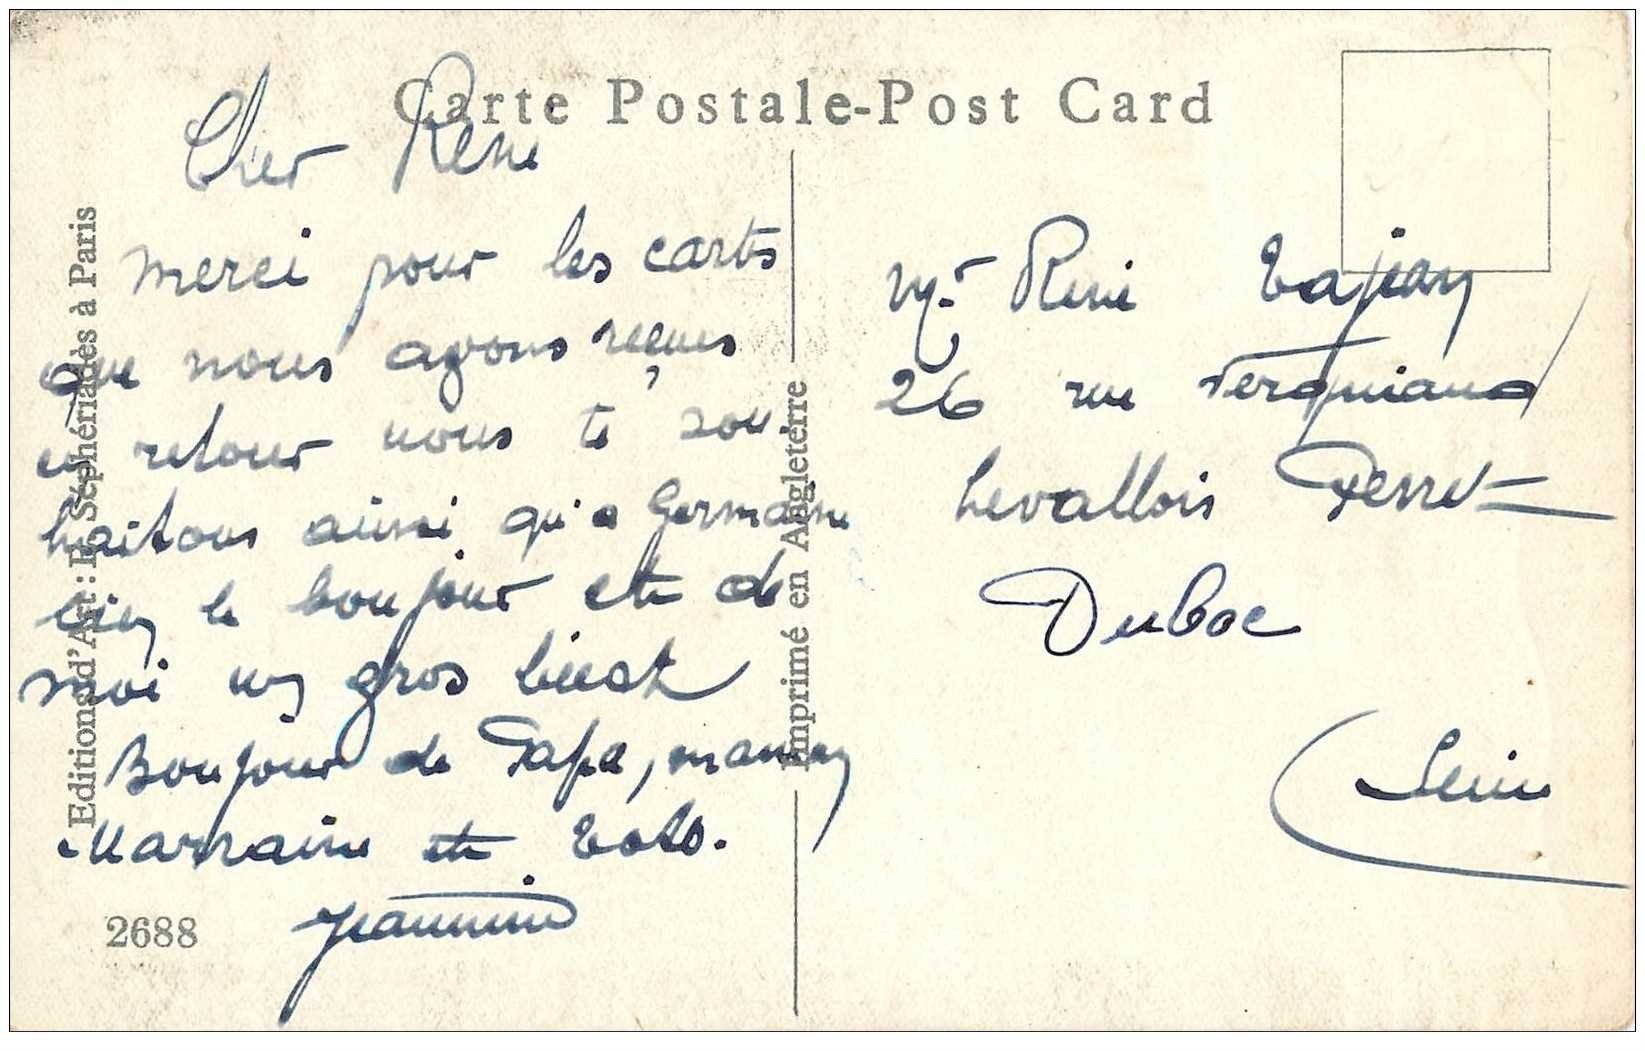 Carte Postale-Post Card
Cher René
Merci pour les cartes
que nous avons reçues
en retour nous te sou-
haitons ainsi qu'a Germaine
bien le bonjour et de
moi un gros
Bonjour de Papa, maman
Marraine et Toto.
Jeannine
2688
Editions d'Art: R. Séphériadès à Paris
Imprimé en Angleterre
Mr René
26 rue Vergniaud
Levallois Perret
Duboc
Seine